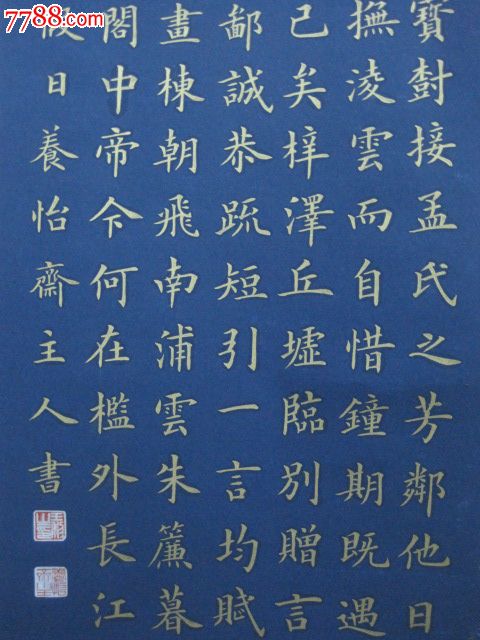 7788.com
中国收藏热线
寶尌接孟氏之芳鄰他日
撫淩雲而自惜鐘期既遇
已矣梓澤丘墟臨別贈言
鄙誠恭疏短引一言均賦
畫棟朝飛南浦雲朱簾暮
閣中帝今何在檻外長江
日養怡齋主人書